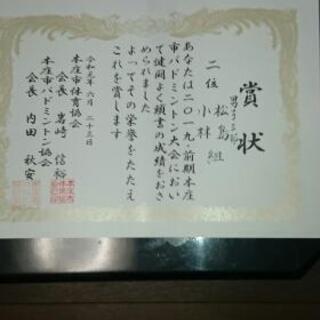 賞状
男子3部
二位
松島
小林
組
あなたは二〇一九・前期本庄
市バドミントン大会におい
て健闘よく頭書の成績をおさ
められました
よってその栄誉をたたえ
これを賞します
令和元年六月二十三日
本庄市体育協会
会長 岩崎 信裕
本庄市バドミントン協会
会長 内田